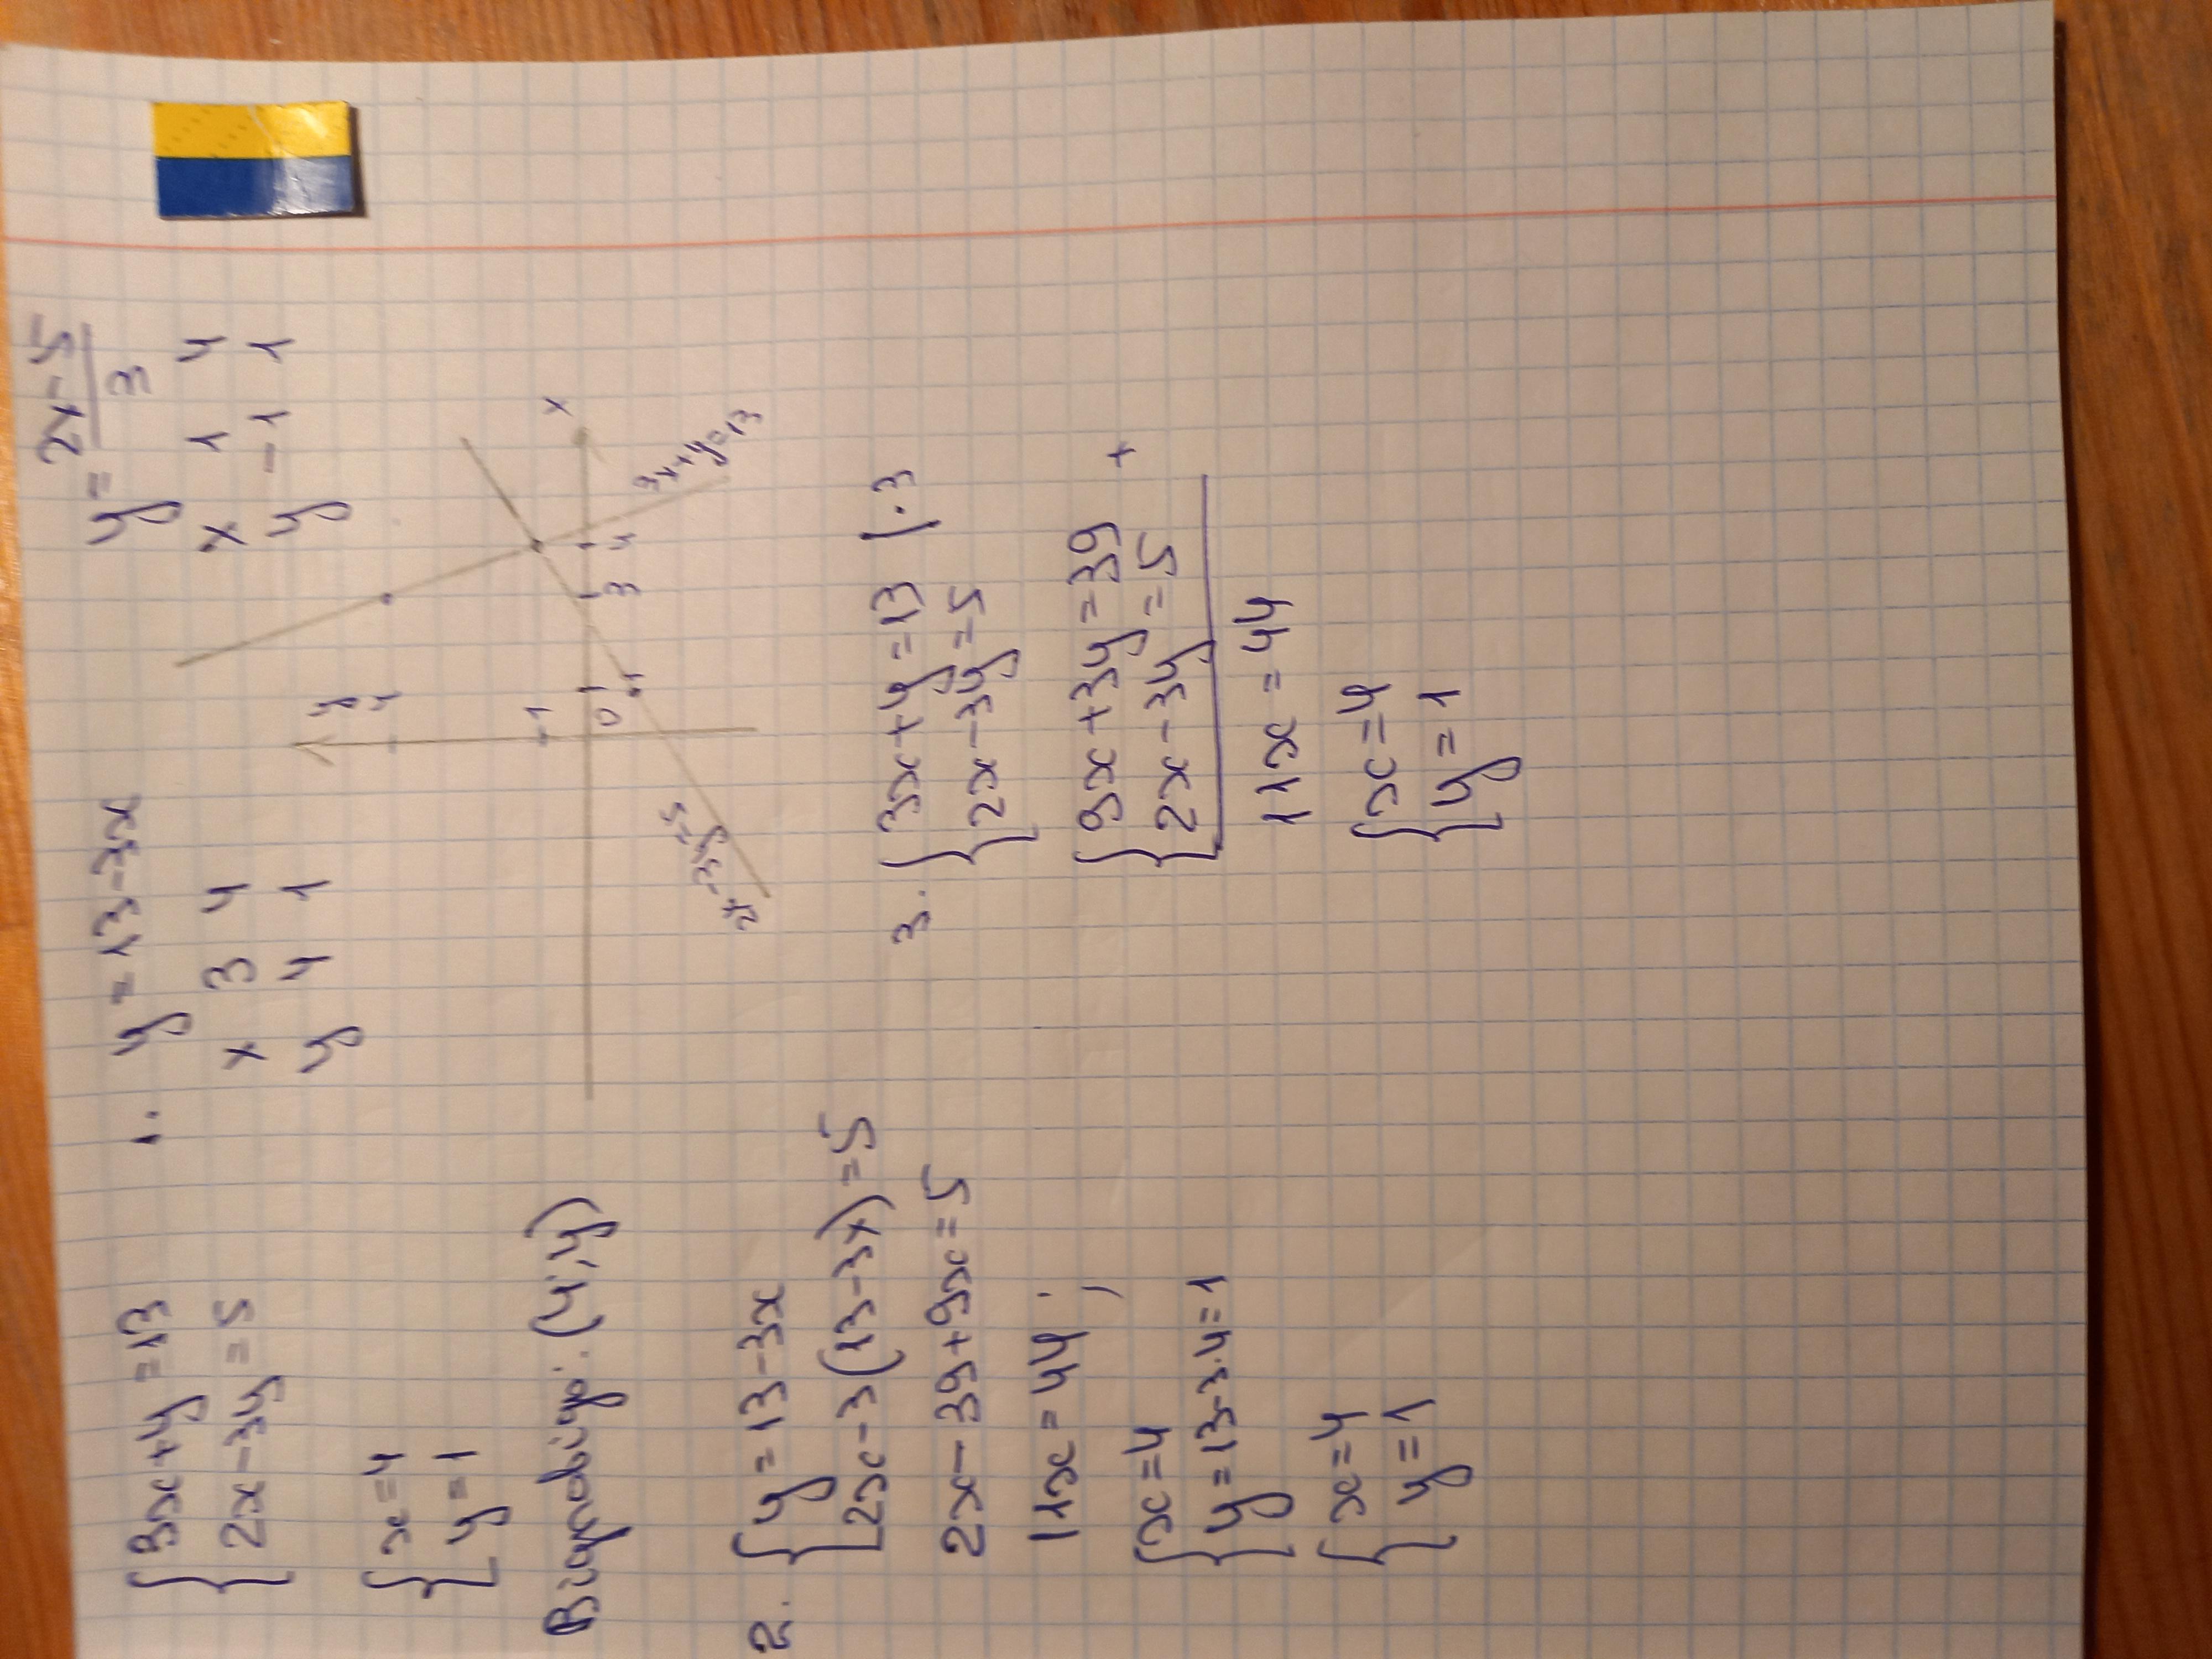 {3x+y=13
2x-3y=5
{x=4
y=1
Відповідь: (4;y)
1. y=13-3x
x 3 4
y 4 1
y=2x-5/3
x 1 4
y -1 1
y
4
1
0 1 3 4 x
-1
3x+y=13
2x-3y=5
2. {y=13-3x
2x-3(13-3x)=5
2x-39+9x=5
11x=44;
{x=4
y=13-3·4=1
{x=4
y=1
3. {3x+y=13 |·3
2x-3y=5
{9x+3y=39 +
2x-3y=5
11x=44
{x=4
y=1